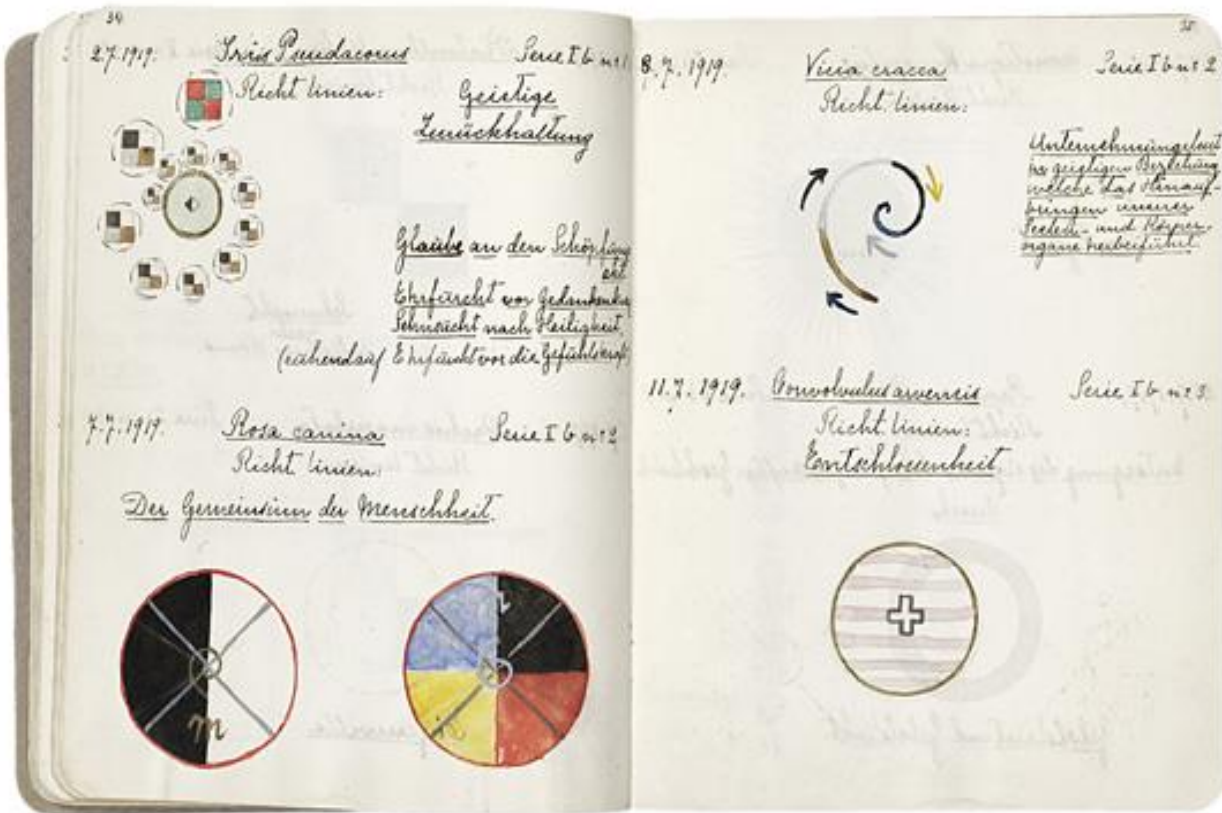 34
2.7.1919. Iris Pseudacorus Serie I b n:r 1
Richt linien:
Geistige
Zurückhaltung
Glaube an den Schöpfung
Ehrfurcht vor Gedanken
Sehnsucht nach Heiligkeit,
(ruhend auf Ehrfurcht vor die Gefühlskraft)
7.7.1919. Rosa canina Serie I b n:r 2
Richt linien:
Der Gemeinsinn der Menschheit.
m
r
8.7.1919. Vicia cracca Serie I b n:r 2
Richt linien:
Unternehmungslust
in geistigen Beziehung
welche das Hinauf-
bringen unserer
Seelen- und Körper-
organe herbeiführt.
11.7.1919. Convolvulus arvensis Serie I b n:r 3
Richt linien:
Entschlossenheit